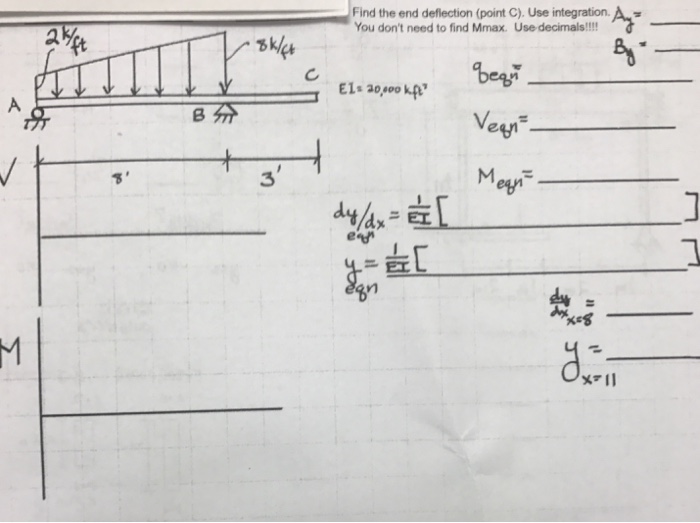 Find the end deflection (point C). Use integration. Ay = ____
You don't need to find Mmax. Use decimals!!!! By = ____
2k/ft
8k/ft
C
EI = 20,000 k.ft²
A
B
8'
3'
qeqn = ____
Veqn = ____
Meqn = ____
dy/dx eqn = 1/EI [ ____ ]
y eqn = 1/EI [ ____ ]
dy/dx x=8 = ____
y x=11 = ____
V
M